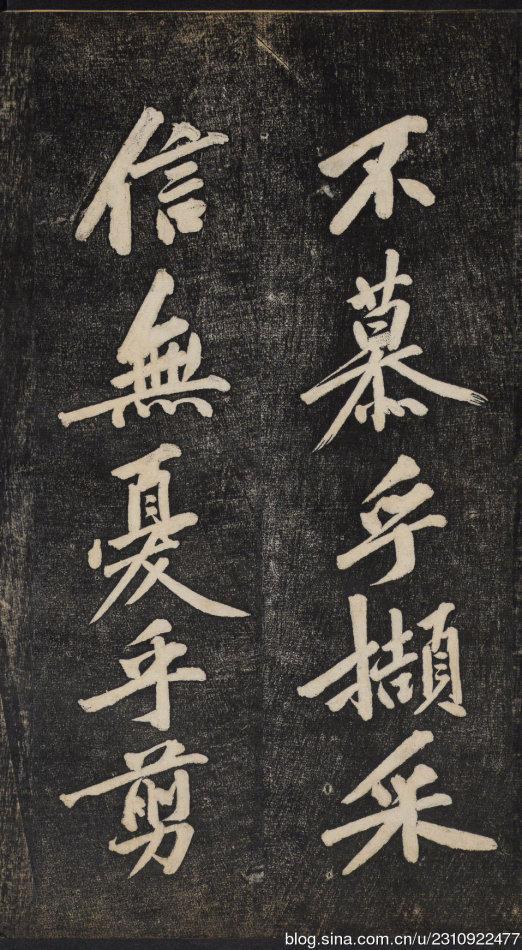 不慕乎擷采
信無憂乎剪
blog.sina.com.cn/u/2310922477